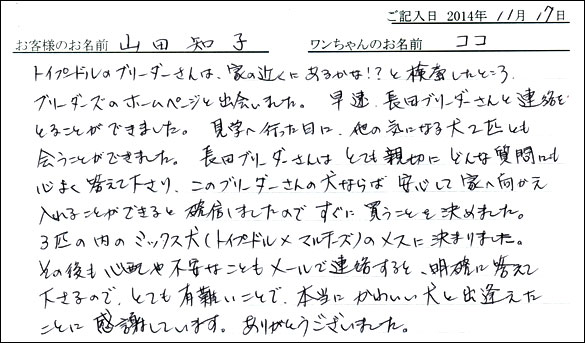 ご記入日 2014年 11月 17日
お客様のお名前 山田 知子 ワンちゃんのお名前 ココ
トイプードルのブリーダーさんは、家の近くにあるかな!?と検索したところ、
ブリーダーズのホームページと出会いました。 早速、長田ブリーダーさんと連絡を
とることができました。 見学へ行った日に、他の気になる犬2匹とも
会うことができました。 長田ブリーダーさんは とても親切に どんな質問にも
心よく答えて下さり、このブリーダーさんの犬ならば 安心して家へ向かえ
入れることができると 確信しましたので すぐに 買うことを決めました。
3匹の内の ミックス犬(トイプードル×マルチーズ)のメスに決まりました。
その後も 心配や不安なことも メールで連絡すると、明確に答えて
下さるので、とても有難いことで、本当に かわいい犬と出逢えた
ことに 感謝しています。 ありがとうございました。